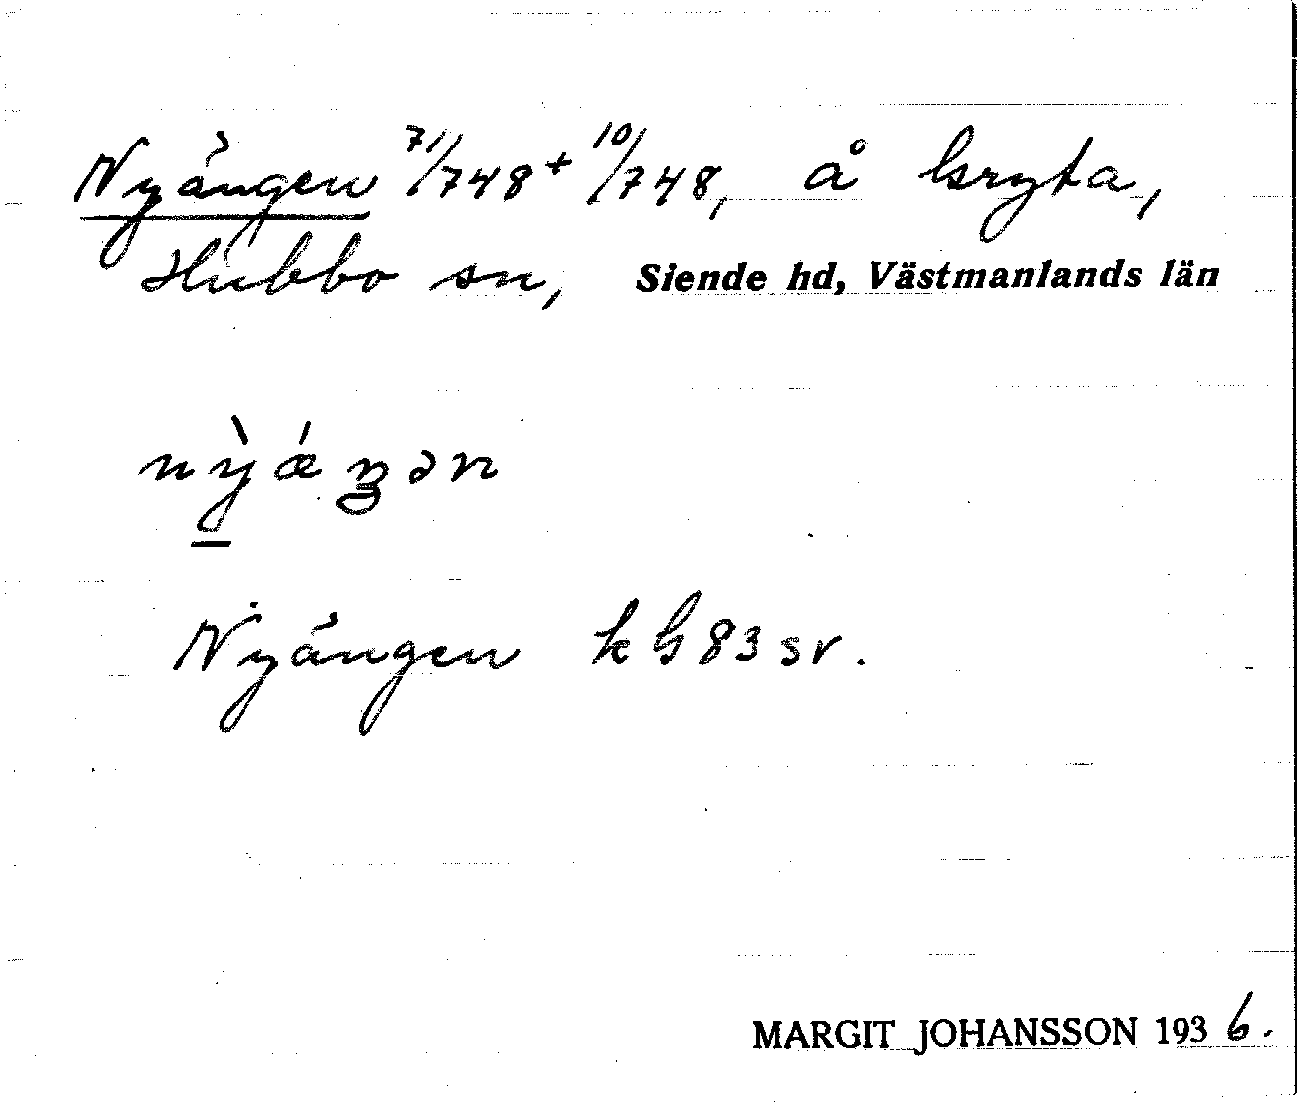 Nyängen 71/748 + 10/748, å bryta,
Hubbo sn, Siende hd, Västmanlands län
nỳǽŋən
Nyängen k b 83 sv.
MARGIT JOHANSSON 1936.